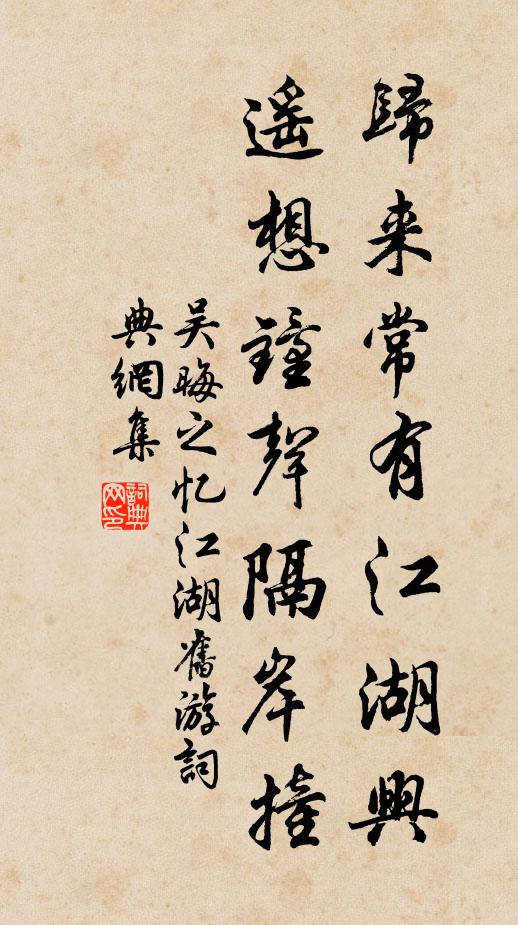 歸来常有江湖興
遥想鐘聲隔岸撞
吴晦之忆江湖舊游詞
典網集
詞典网印